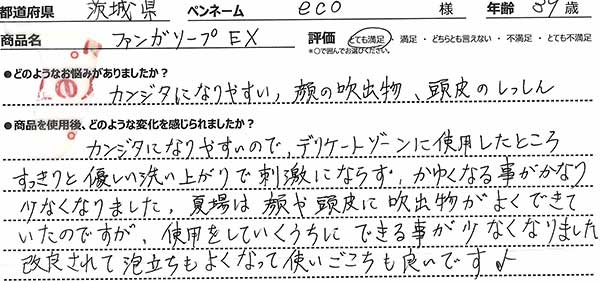 都道府県 茨城県 ペンネーム eco 様 年齢 39 歳
商品名 ファンガソープEX 評価 とても満足・満足・どちらとも言えない・不満足・とても不満足
*○で囲んでお選びください。
●どのようなお悩みがありましたか?
カンジタになりやすい、顔の吹出物、頭皮のしっしん
●商品を使用後、どのような変化を感じられましたか?
カンジタになりやすいので、デリケートゾーンに使用したところ
すっきりと優しい洗い上がりで刺激にならず、かゆくなる事がかなり
少なくなりました。夏場は顔や頭皮に吹出物がよくできて
いたのですが、使用をしていくうちにできる事が少なくなりました
改良されて泡立ちもよくなって使いごこちも良いです♪